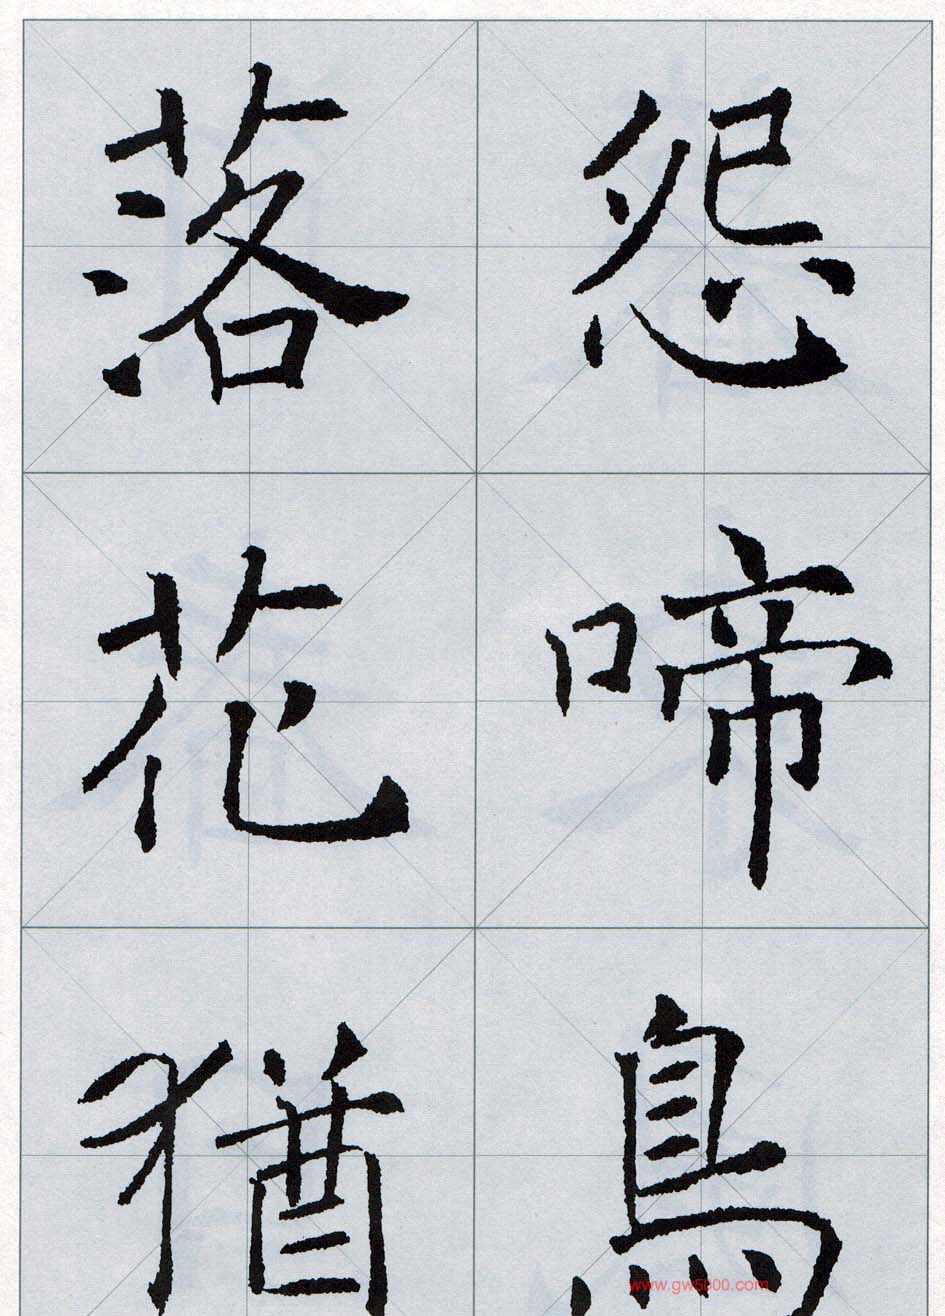 怨啼鳥
落花猶
www.gw5000.com